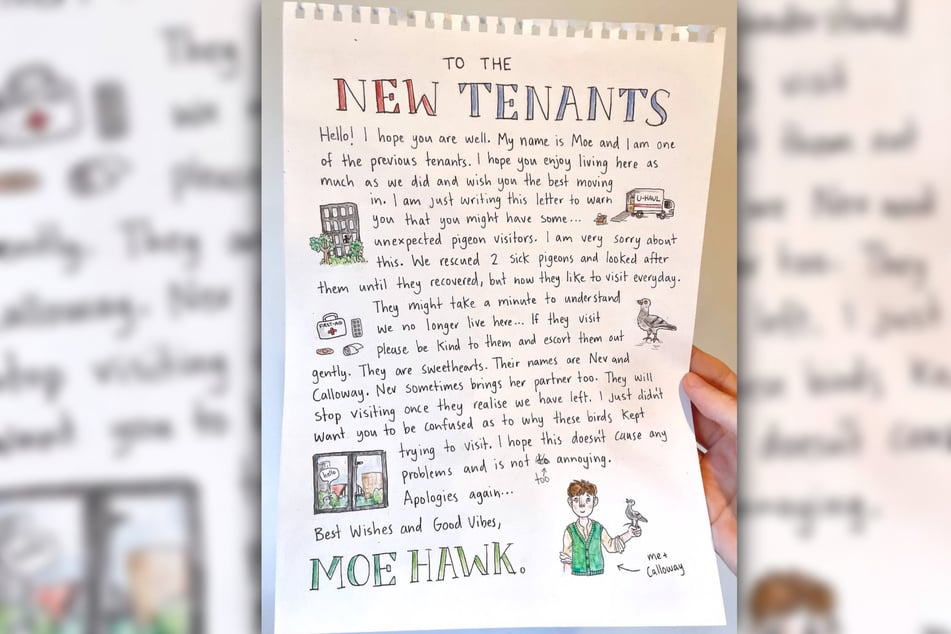 TO THE
NEW TENANTS
Hello! I hope you are well. My name is Moe and I am one
of the previous tenants. I hope you enjoy living here as
much as we did and wish you the best moving
in. I am just writing this letter to warn
U-HAUL
you that you might have some...
unexpected pigeon visitors. I am very sorry about
this. We rescued 2 sick pigeons and looked after
them until they recovered, but now they like to visit everyday.
They might take a minute to understand
FIRST-AID
we no longer live here... If they visit
please be kind to them and escort them out
gently. They are sweethearts. Their names are Nev and
Calloway. Nev sometimes brings her partner too. They will
stop visiting once they realise we have left. I just didn't
want you to be confused as to why these birds kept
trying to visit. I hope this doesn't cause any
hello
problems and is not to annoying.
too
Apologies again...
Best Wishes and Good Vibes,
MOE HAWK.
me +
Calloway